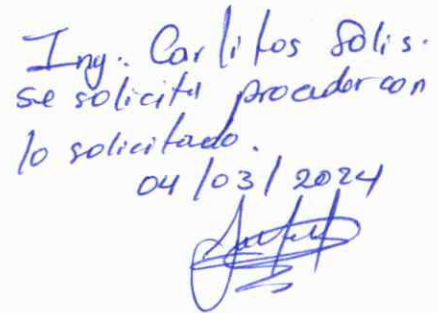 Ing. Carlitos Solis.
se solicita proceder con
lo solicitado.
04/03/2024